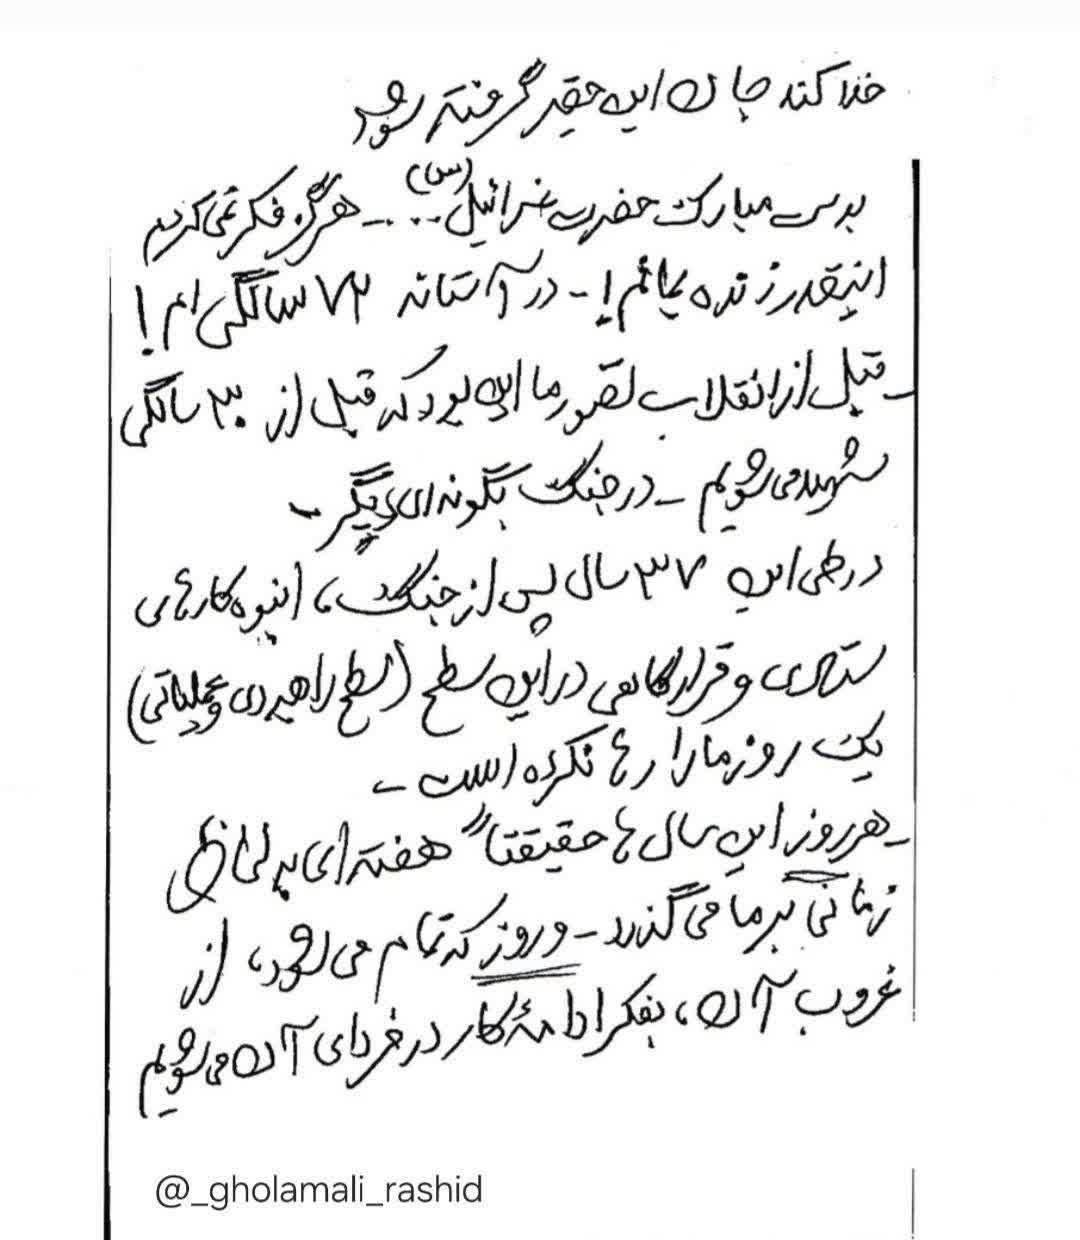 خدا کند جان این حقیر گرفته شود
بدست مبارک حضرت عزرائیل (س) ... - هرگز فکر نمی کردیم
اینقدر زنده بمانم! - در آستانه ۷۲ سالگی ام!
- قبل از انقلاب تصور ما این بود که قبل از ۳۰ سالگی
شهید می شویم - در جنگ بگونه ای دیگر -
در طی این ۳۷ سال پس از جنگ، انبوه کارهای
ستادی و قرارگاهی در این سطح (سطح راهبردی و عملیاتی)
یک روز ما را رها نکرده است -
- هر روز این سال ها حقیقتاً هفته ای به لحاظ
زمانی بر ما می گذرد - و روز که تمام می شود، از
غروب آن، بفکر ادامهٔ کار در فردای آن می شویم
@_gholamali_rashid